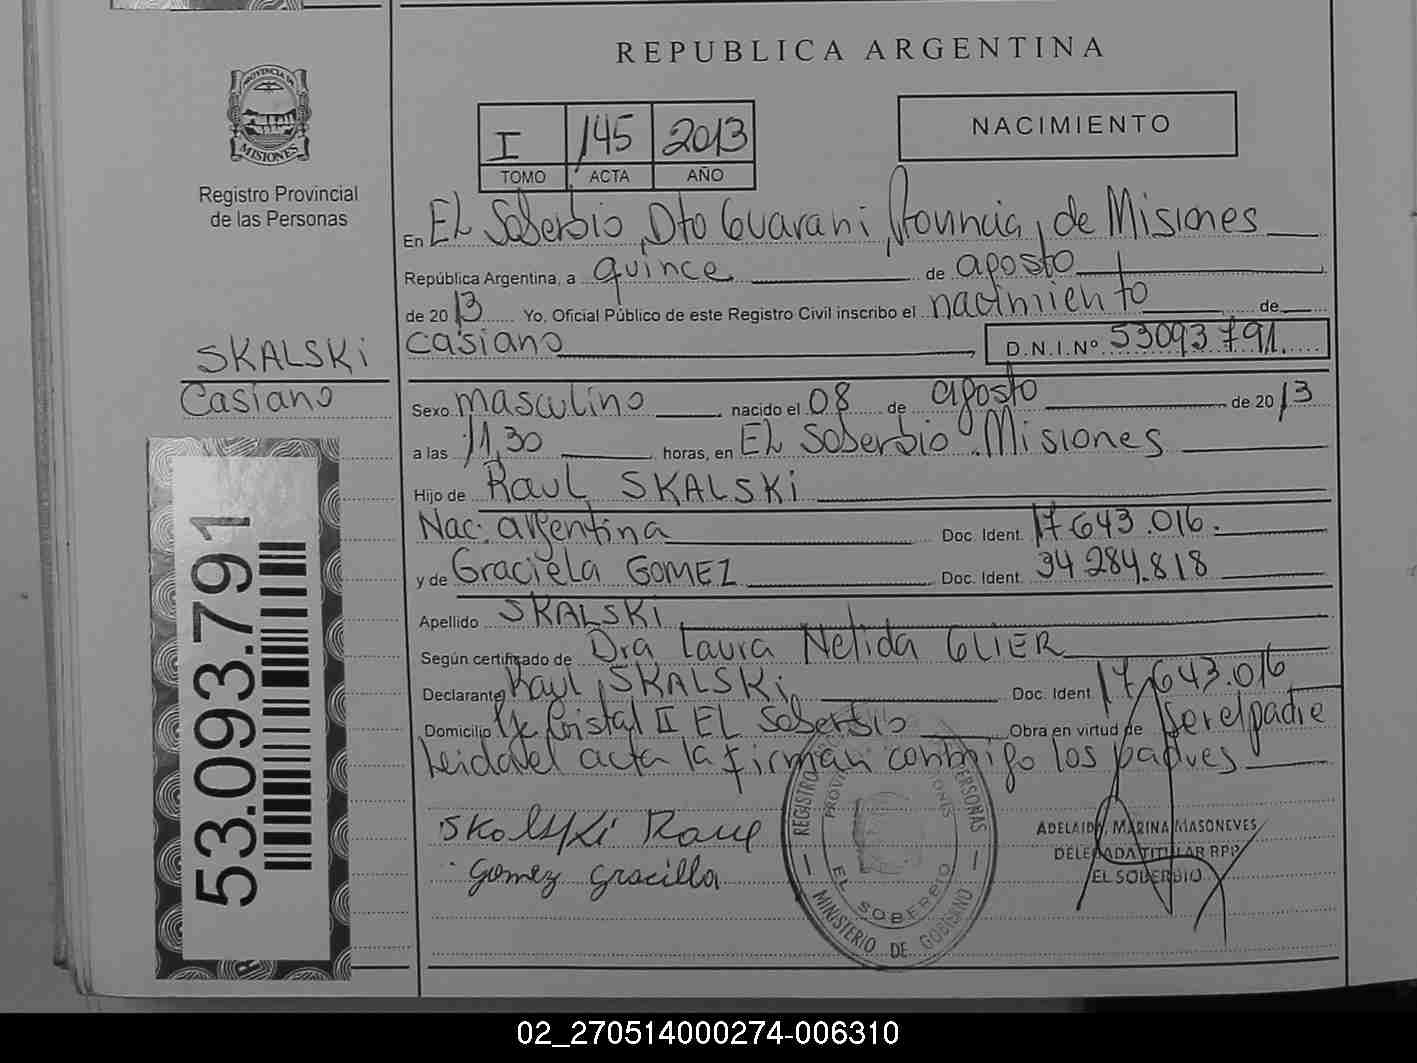 REPUBLICA ARGENTINA
PROVINCIA DE
MISIONES
Registro Provincial
de las Personas
I 145 2013
TOMO ACTA AÑO
NACIMIENTO
En EL Soberbio, Dto Guarani, Provincia, de Misiones
República Argentina, a quince de agosto
de 2013 Yo, Oficial Público de este Registro Civil inscribo el nacimiento de
Casiano D.N.I.Nº 53093791
SKALSKi
Casiano
Sexo masculino nacido el 08 de agosto de 2013
a las 11,30 horas, en EL Soberbio. Misiones
Hijo de Raul SKALSKi
Nac: argentina Doc. Ident. 17643.016.
y de Graciela GOMEZ Doc. Ident. 34284.818
Apellido SKALSKi
Según certificado de Dra Laura Nelida GLIER
Declarante Raul SKALSKi Doc. Ident. 17.643.016
Domicilio Cristal II EL Soberbio Obra en virtud de ser el padre
Leida el acta la firman conmigo los padres
Skolski Raul
Gomez Gracilla
REGISTRO PERSONAS
EL SOBERBIO
MINISTERIO DE GOBIERNO
ADELAIDA MARINA MASONEVES
DELEGADA TITULAR RPP
EL SOBERBIO
53.093.791
02_270514000274-006310